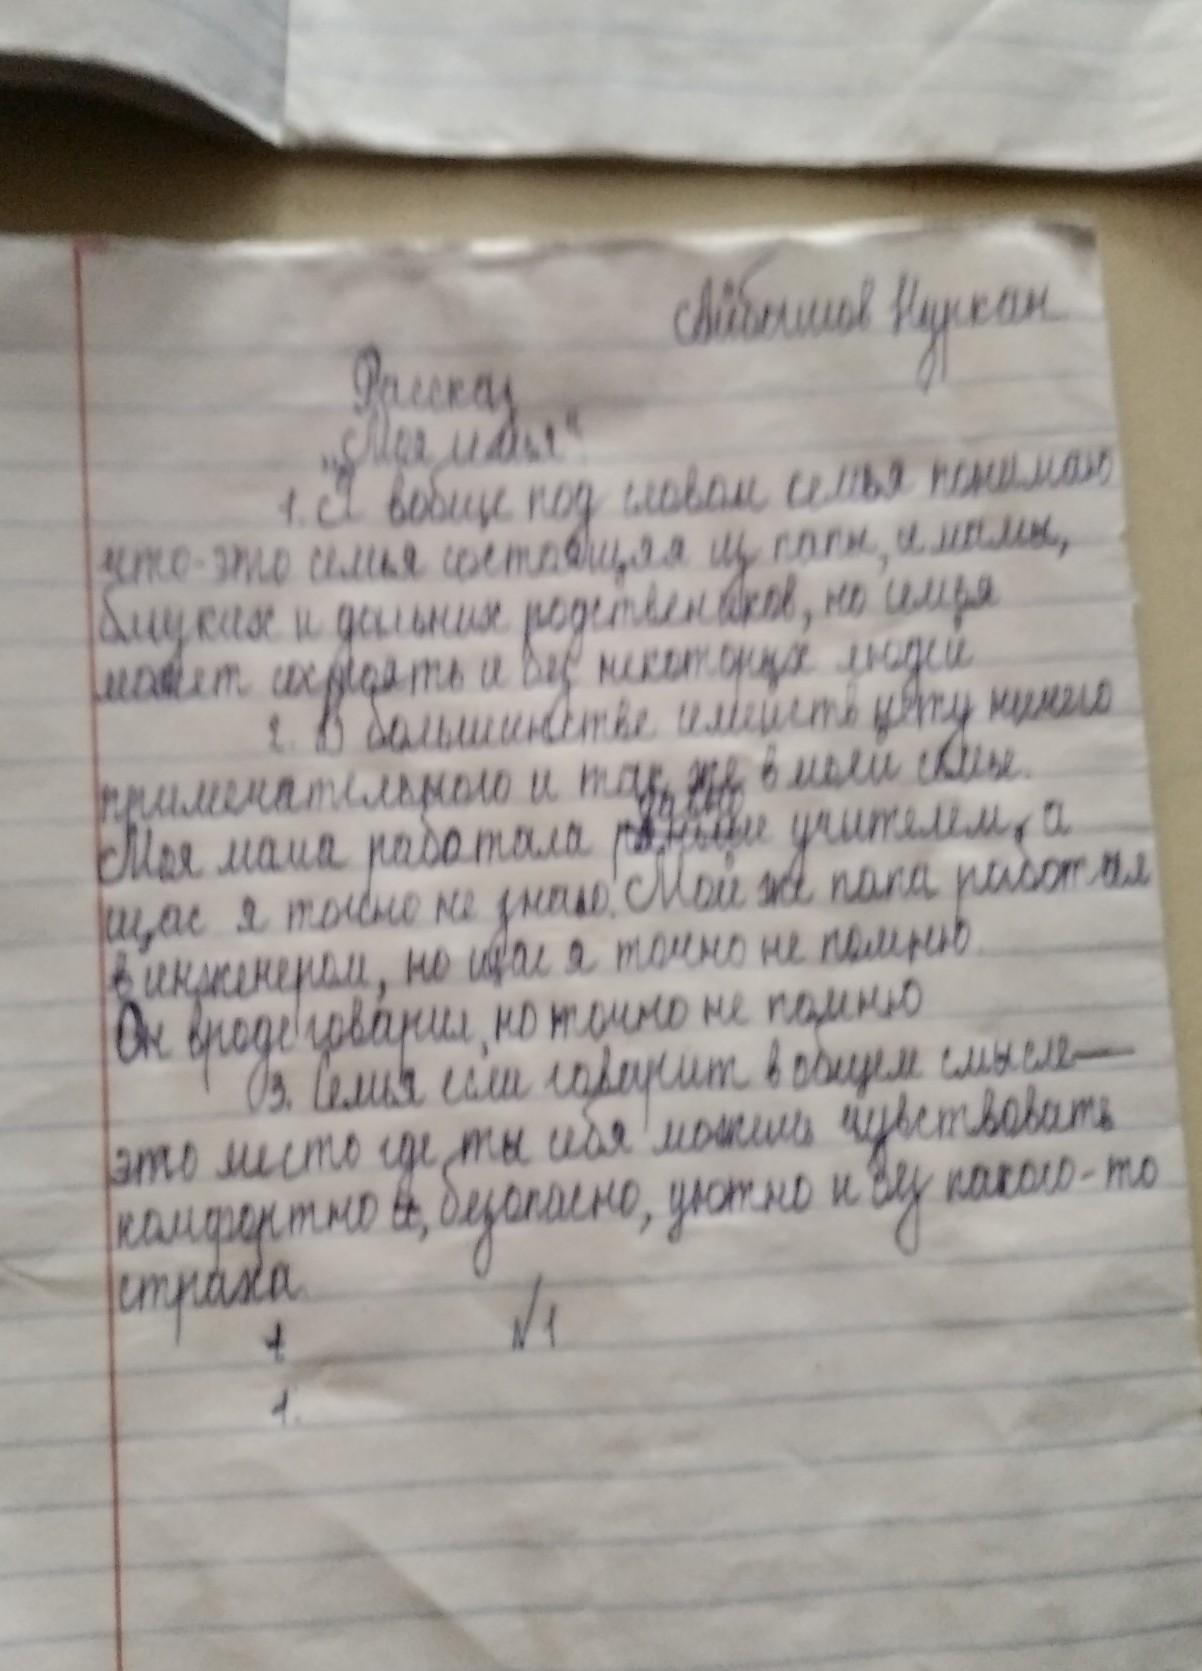 Айбышов Нуркан
Рассказ
„Моя семья“
1. Я вобще под словом семья понимаю
что-это семья состоящяя из папы, и мамы,
блиских и дальних родствеников, но семья
может состоять и без некоторых людей
2. В большинстве семейств нету ничего
примечательного и так же в моей семье.
Моя мама работала давно учителем, а
щас я точно не знаю. Мой же папа работал
инженером, но щас я точно не помню.
Он вроде говорил, но точно не помню
3. Семья если говорит в общем смысле—
это место где ты себя можешь чувствовать
комфортно, безопасно, уютно и без какого-то
страха.
№1
1.